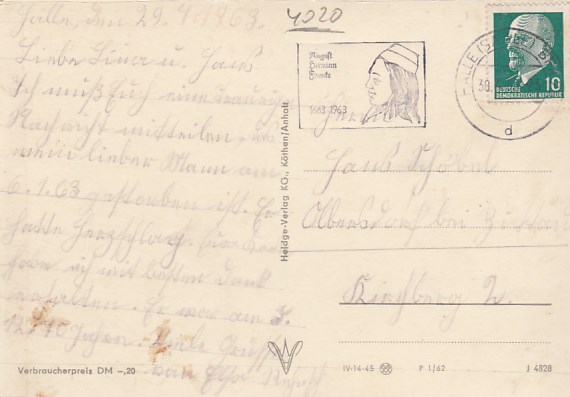 Halle, den 29.4.1963.
Liebe Lina u. Hans
Ich muß Euch eine traurige
Nachricht mitteilen, das
mein lieber Mann am
6.1.63 gestorben ist. Er
hatte Herzschlag.
habe ich mit besten Dank
erhalten. Er war am
Jahren. Viele Grüße
von Elsa
4020
August
Herman
Francke
1663 1963
HALLE (SAALE)
30.
d
DEUTSCHE
DEMOKRATISCHE REPUBLIK
10
Hans Schöbel
Olbersdorf bei Zittau
Kirchberg 2.
Heldge-Verlag KG., Köthen/Anhalt
Verbraucherpreis DM -,20
IV-14-45
P 1/62
J 4828